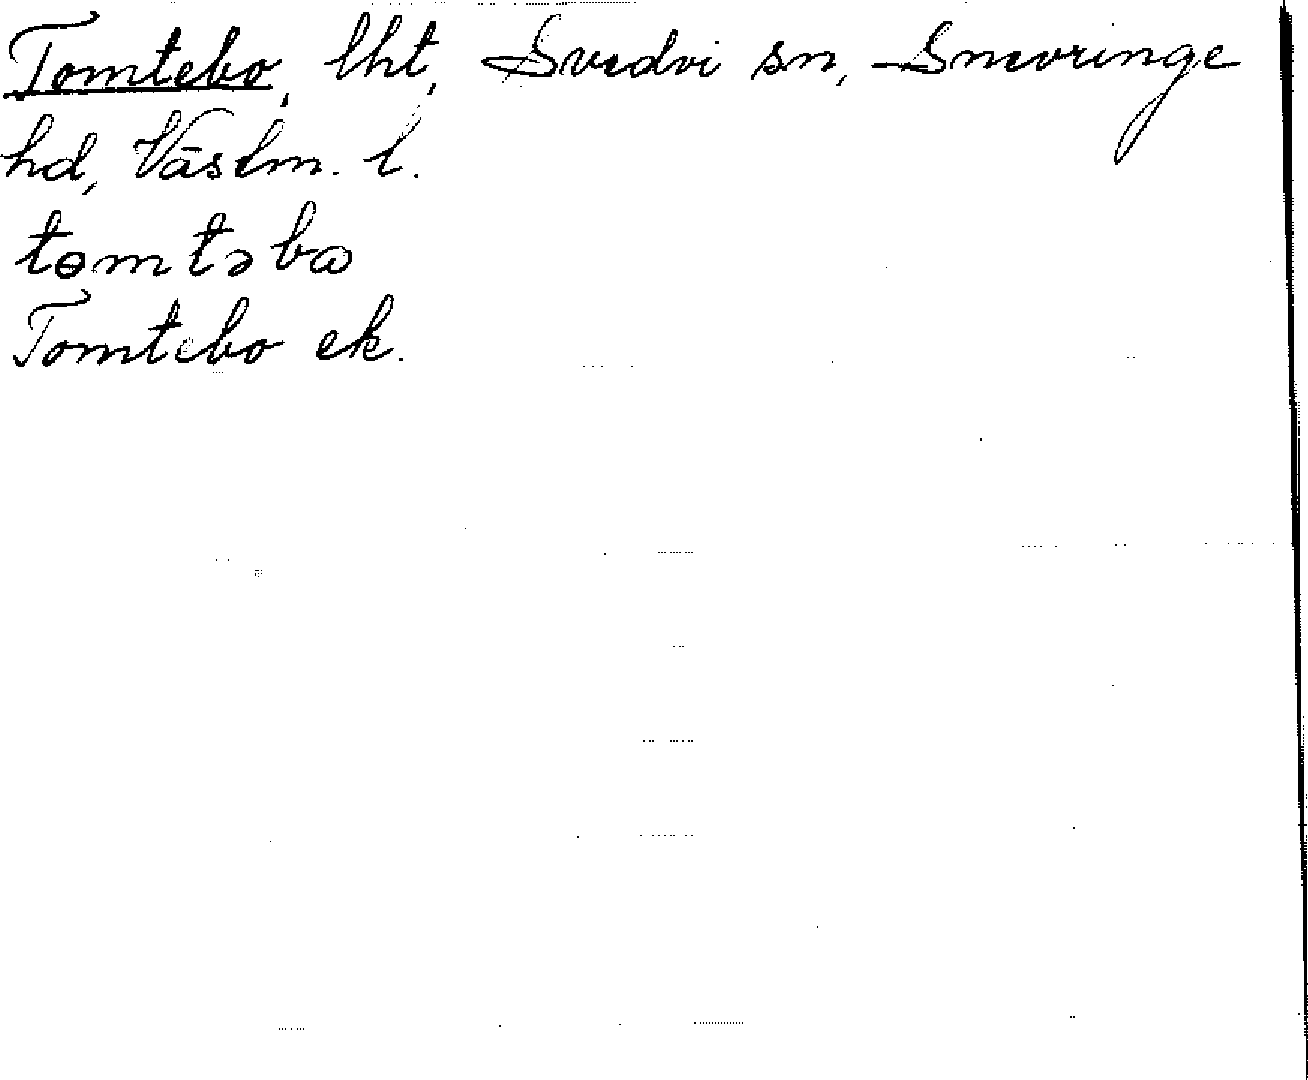 Tomtebo, lht, Svedvi sn, Snevringe
hd, Västm. l.
tɵmtəbɷ
Tomtebo ek.